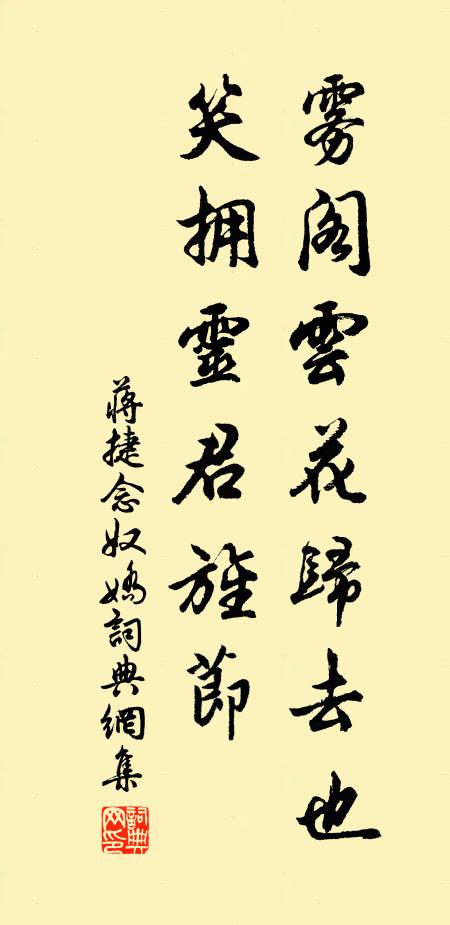 雾阁雲花歸去也
笑拥靈君旌節
蔣捷念奴嬌詞典網集
詞典网印